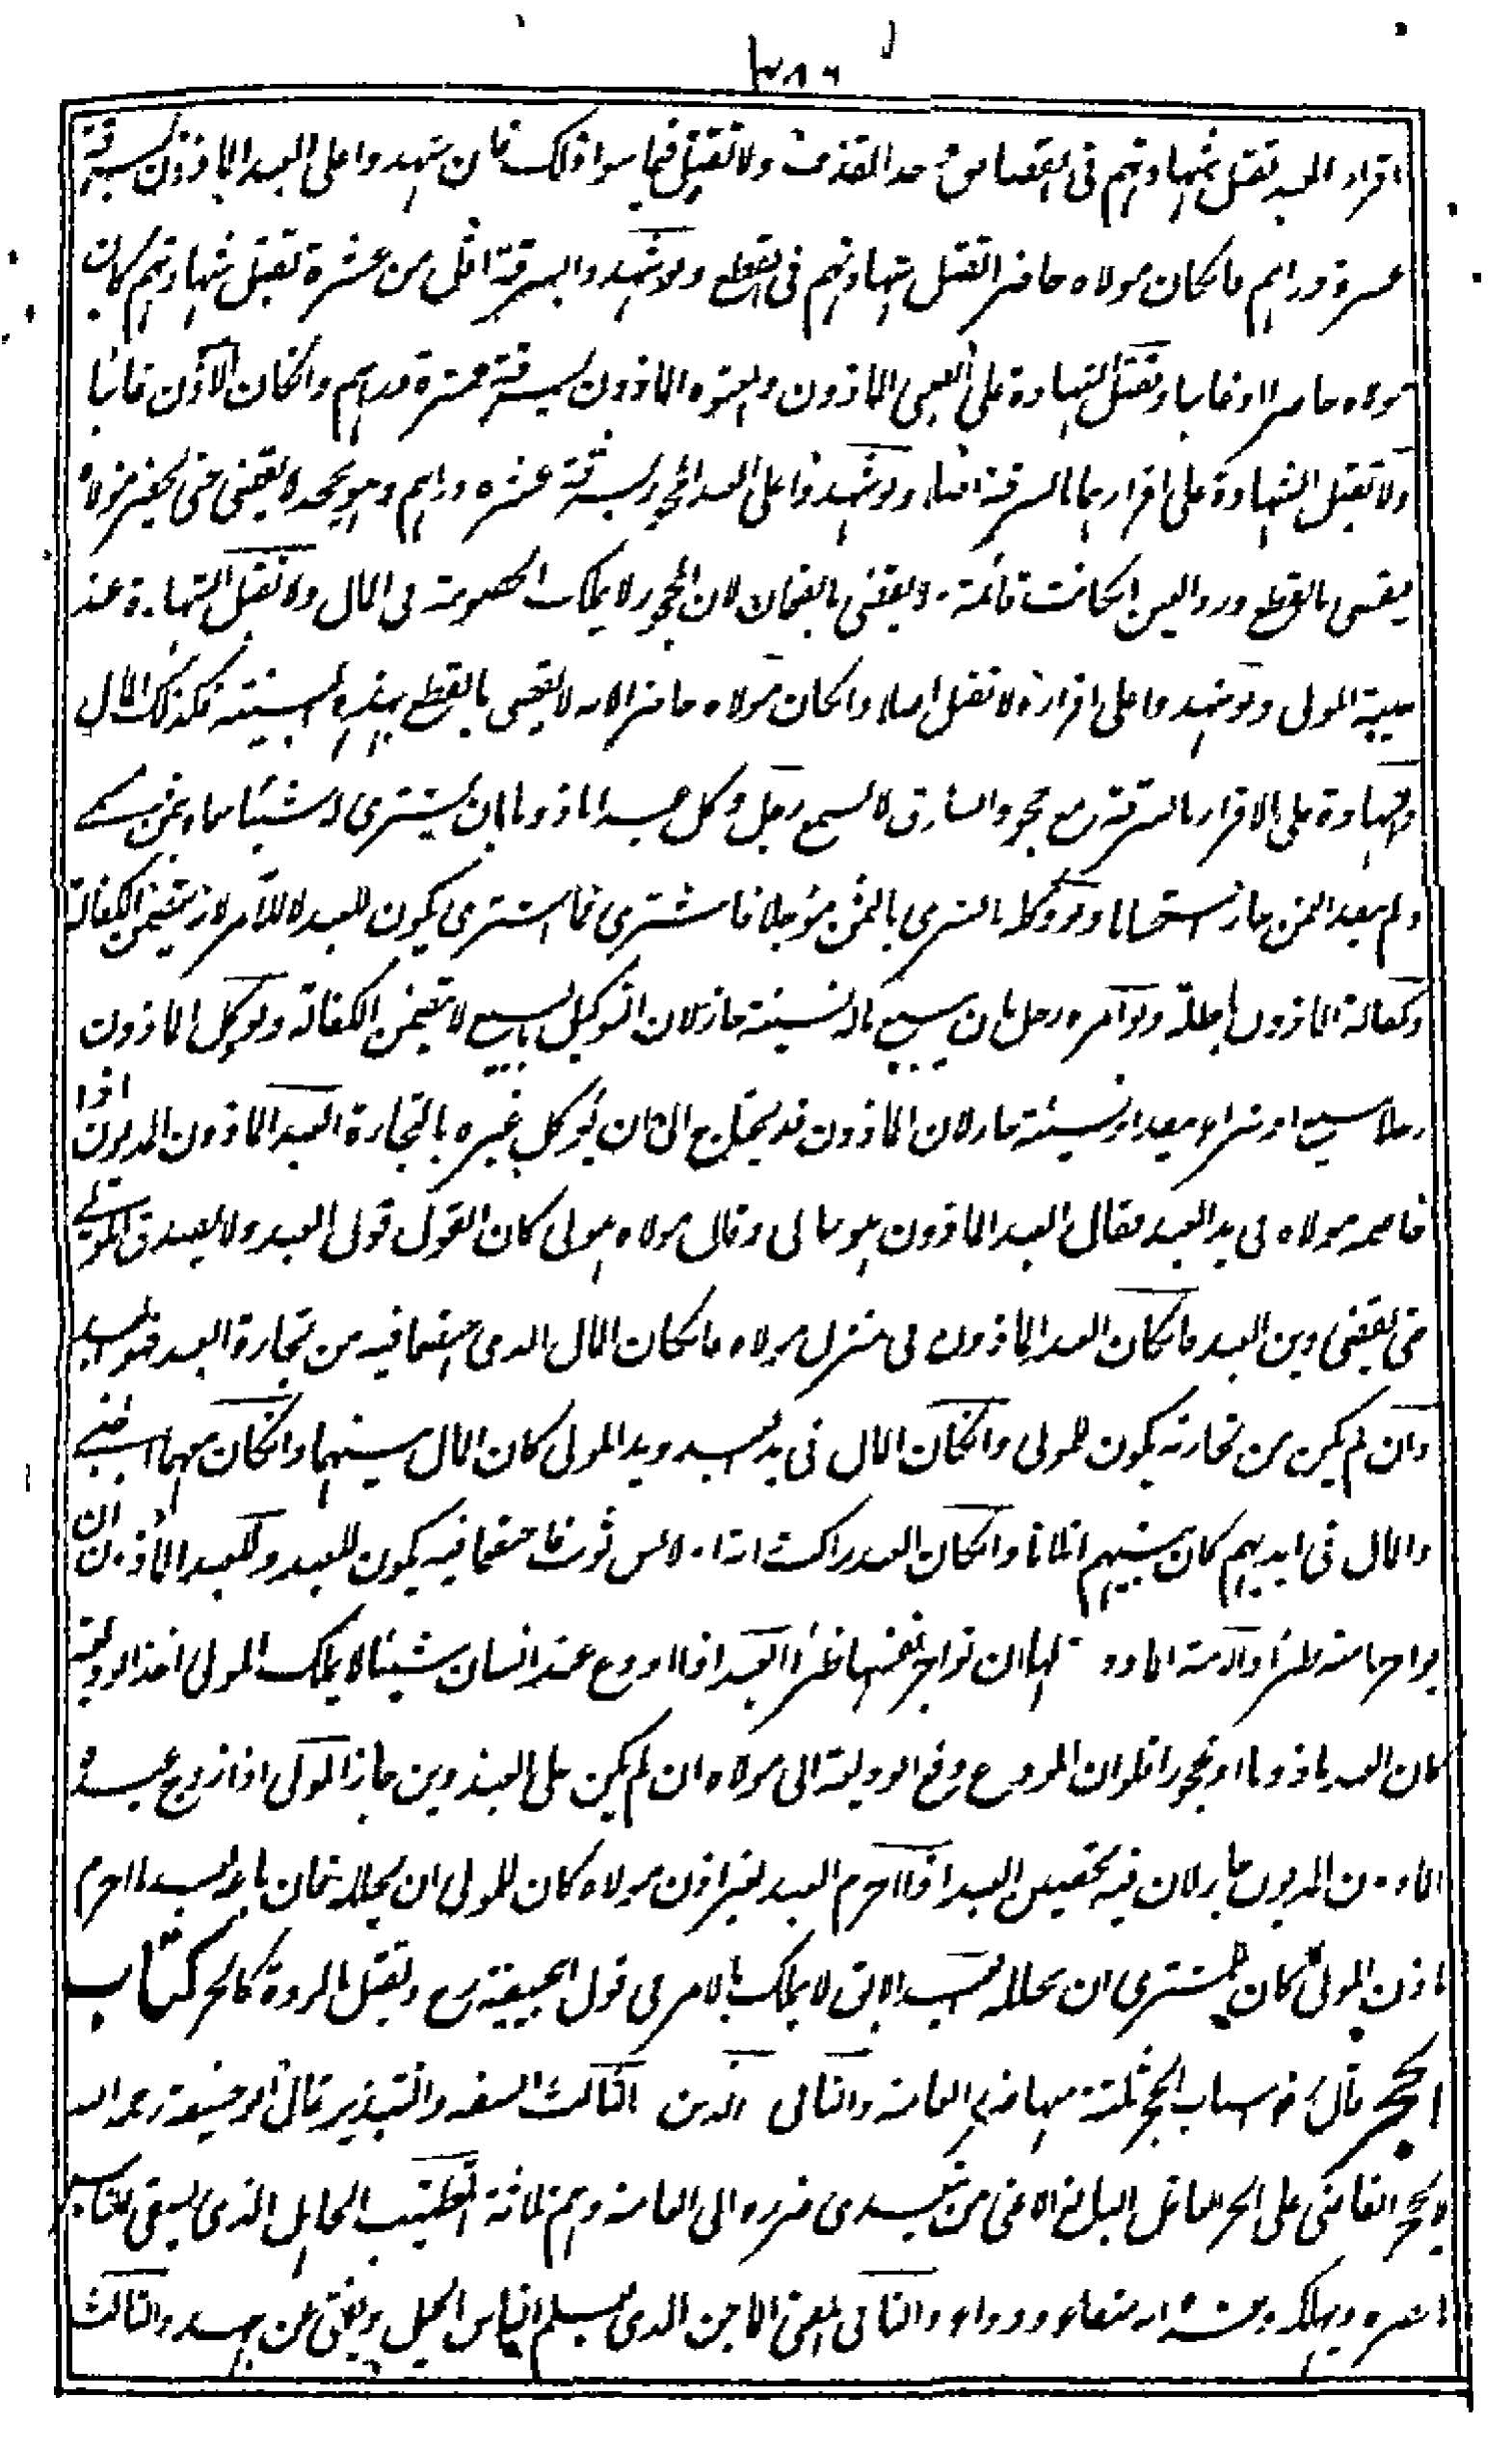 ٣٨٦
اقرار العبد تقبل شهادتهم فى القصاص و حد القذف ولا تقبل فيما سوا ذلك فان شهدوا على العبد الماذون بسرقة
عشرة دراهم فانكان مولاه حاضرا تقبل شهادتهم فى القطع ولو شهدوا بسرقة اقل من عشرة تقبل شهادتهم كان
مولاه حاضرا او غايبا وتقبل الشهادة على الصبى الماذون والمعتوه الماذون بسرقة عشرة دراهم وانكان الآذن غائبا
ولا تقبل الشهادة على اقرارهما بالسرقة اصلا ولو شهدوا على العبد المحجور بسرقة عشره دراهم وهو يجحد لا يقضى حتى يحضر مولاه
فيقضى بالقطع ورد العين انكانت قائمة ولا يقضى بالضمان لان المحجور لا يملك الخصومة فى المال ولا تقبل الشهادة عند
غيبة المولى ولو شهدوا على اقراره لا تقبل اصلا وانكان مولاه حاضرا لانه لا يقضى بالقطع بهذه البينة فكذلك المال
والشهادة على الاقرار بالسرقة مع جحود السارق لا تسمع رجل وكل عبدا ماذونا بان يشترى له شيئا سماه بثمن سمى
ولم ينقد الثمن جاز استحسانا ولو وكله بالشرى بالثمن مؤجلا فاشترى فما اشترى يكون للعبد لا للآمر لانه يتضمن الكفالة
وكفالة الماذون باطلة ولو آمره رجل بان يبيع ماله نسيئة جاز لان التوكيل بالبيع لا يتضمن الكفالة ولو وكل الماذون
رجلا ببيع او شراء بنقد او نسيئة جاز لان الماذون قد يحتاج الى ان يوكل غيره بالتجارة العبد الماذون المديون اذا
خاصمه مولاه فى يد العبد فقال العبد الماذون هو مالى وقال مولاه هو لى كان القول قول العبد ولا يصدق المولى
حتى يقضى دين العبد فانكان العبد الماذون فى منزل مولاه فانكان المال الذى اختصما فيه من تجارة العبد فهو للعبد
وان لم يكن من تجارته يكون للمولى وانكان المال فى يد العبد ويد المولى كان المال بينهما وانكان معهما اجنبى
والمال فى ايديهم كان بينهم اثلاثا وانكان العبد راكب دابة او لابس ثوب فاختصما فيه يكون للعبد وللعبد الماذون ان
يواجر امته ظئرا وللامة الماذونة لها ان تواجر نفسها ظئرا العبد اذا اودع عند انسان شيئا لا يملك المولى اخذ الوديعة
كان العبد ماذونا او محجورا فلو ان المودع دفع الوديعة الى مولاه ان لم يكن على العبد دين جاز المولى اذا زوج عبده
الماذون المديون جاز لان فيه تحصين العبد اذا احرم العبد بغير اذن مولاه كان للمولى ان يحلله فان باعه بعد ما احرم
باذن المولى كان للمشترى ان يحلله العبد الابق لا يملك بالاسر فى قول ابيحنيفة رح وتقبل الردة كالحر كتاب
الحجر قال رض اسباب الحجر ثلثة منها ضرر العامة والثانى الدين الثالث السفه والتبذير قال ابو حنيفة رحمه الله
لا يحجر القاضى على الحر العاقل البالغ الا على من يتعدى ضرره الى العامة وهم ثلاثة الطبيب الجاهل الذى يسقى الناس
ما يضره ويهلكه وعنده انه شفاء ودواء والثانى المفتى الماجن الذى يعلم الناس الحيل ويفتى عن جهل والثالث